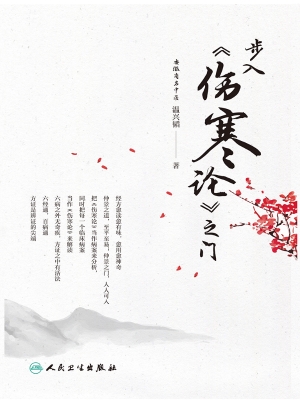 步入
《伤寒论》之门
安徽省名中医
温兴韬
著
经方愈读愈有味，愈用愈神奇
仲景之道，至平至易；仲景之门，人人可入
把《伤寒论》当作病案来分析，
同时把每一个临床病案
当作《伤寒论》来解读
六病之外无奇疾，方证之中有活法
六经通，百病通
方证是辨证的尖端
人民卫生出版社